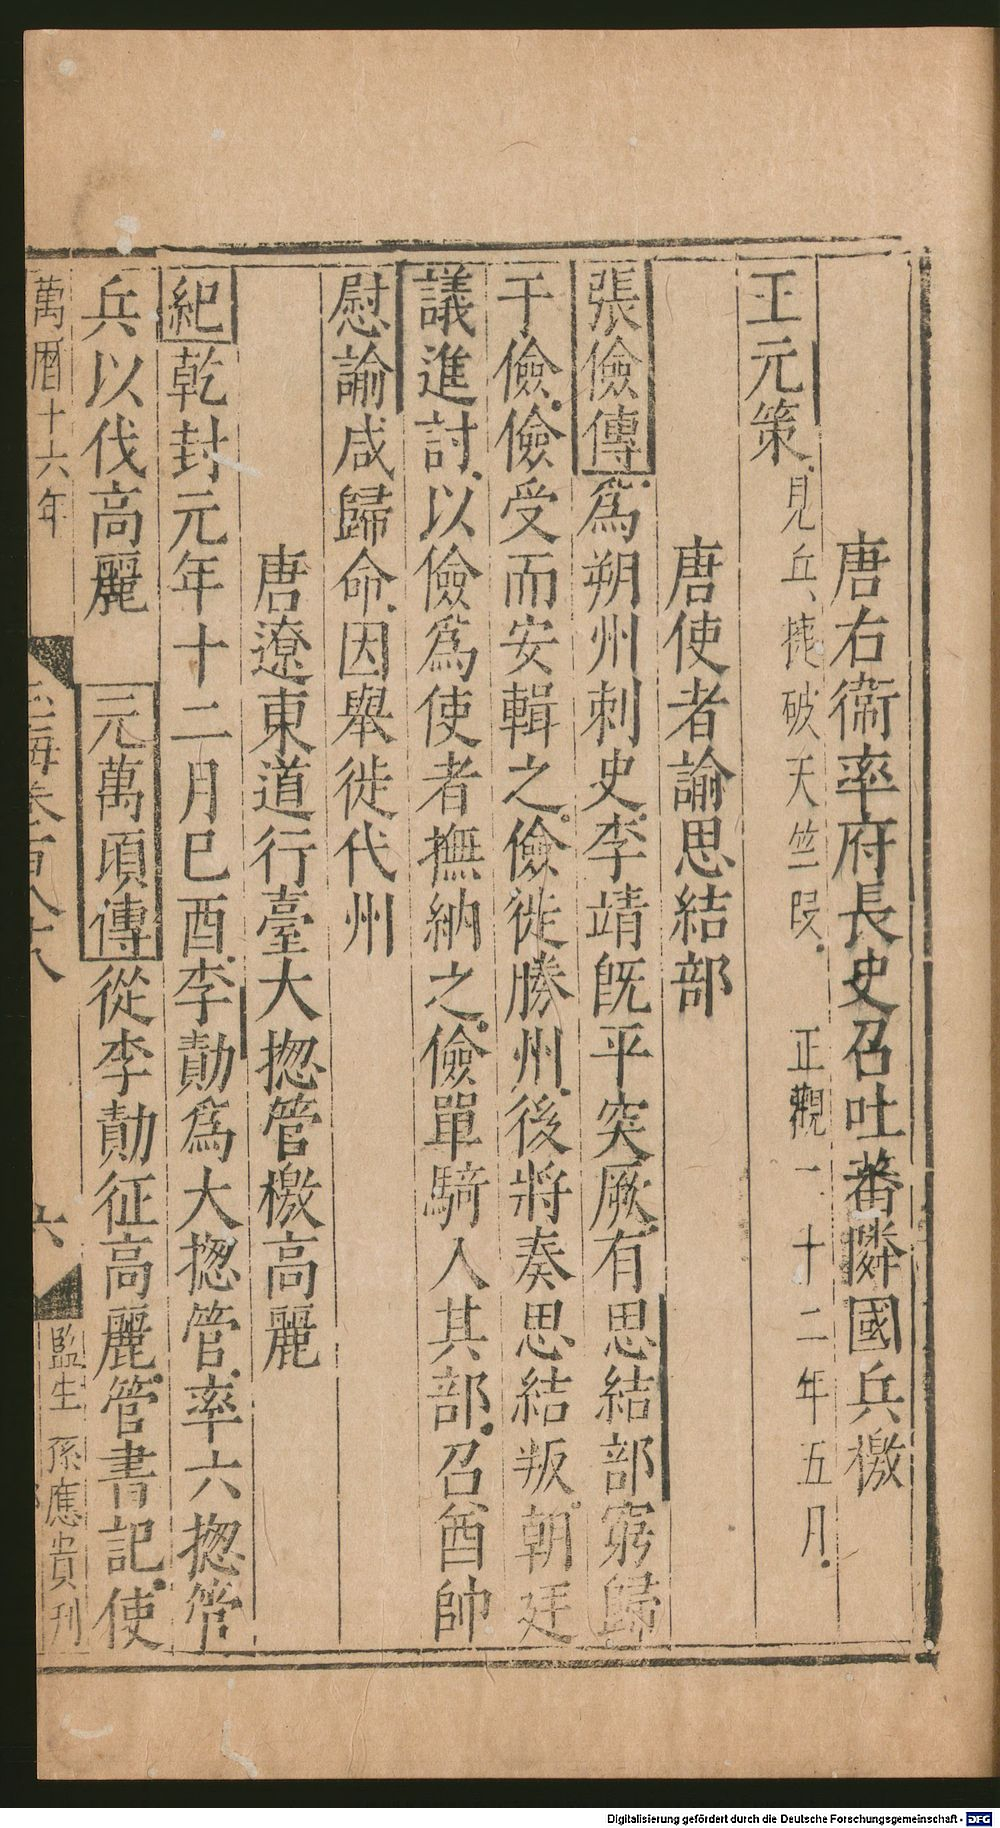 唐右衞率府長史召吐蕃隣國兵檄
王元策見兵捷破天竺段正觀二十二年五月
唐使者諭思結部
張儉傳為朔州刺史李靖既平突厥有思結部窮歸
于儉儉受而安輯之儉徙勝州後將奏思結叛朝廷
議進討以儉為使者撫納之儉單騎入其部召酋帥
慰諭咸歸命因舉徙代州
唐遼東道行臺大揔管檄高麗
紀乾封元年十二月己酉李勣為大揔管率六揔管
兵以伐高麗 元萬頃傳從李勣征高麗管書記使
萬曆十六年 玉海卷百八十八 六 監生孫應貴刊
Digitalisierung gefördert durch die Deutsche Forschungsgemeinschaft - DFG